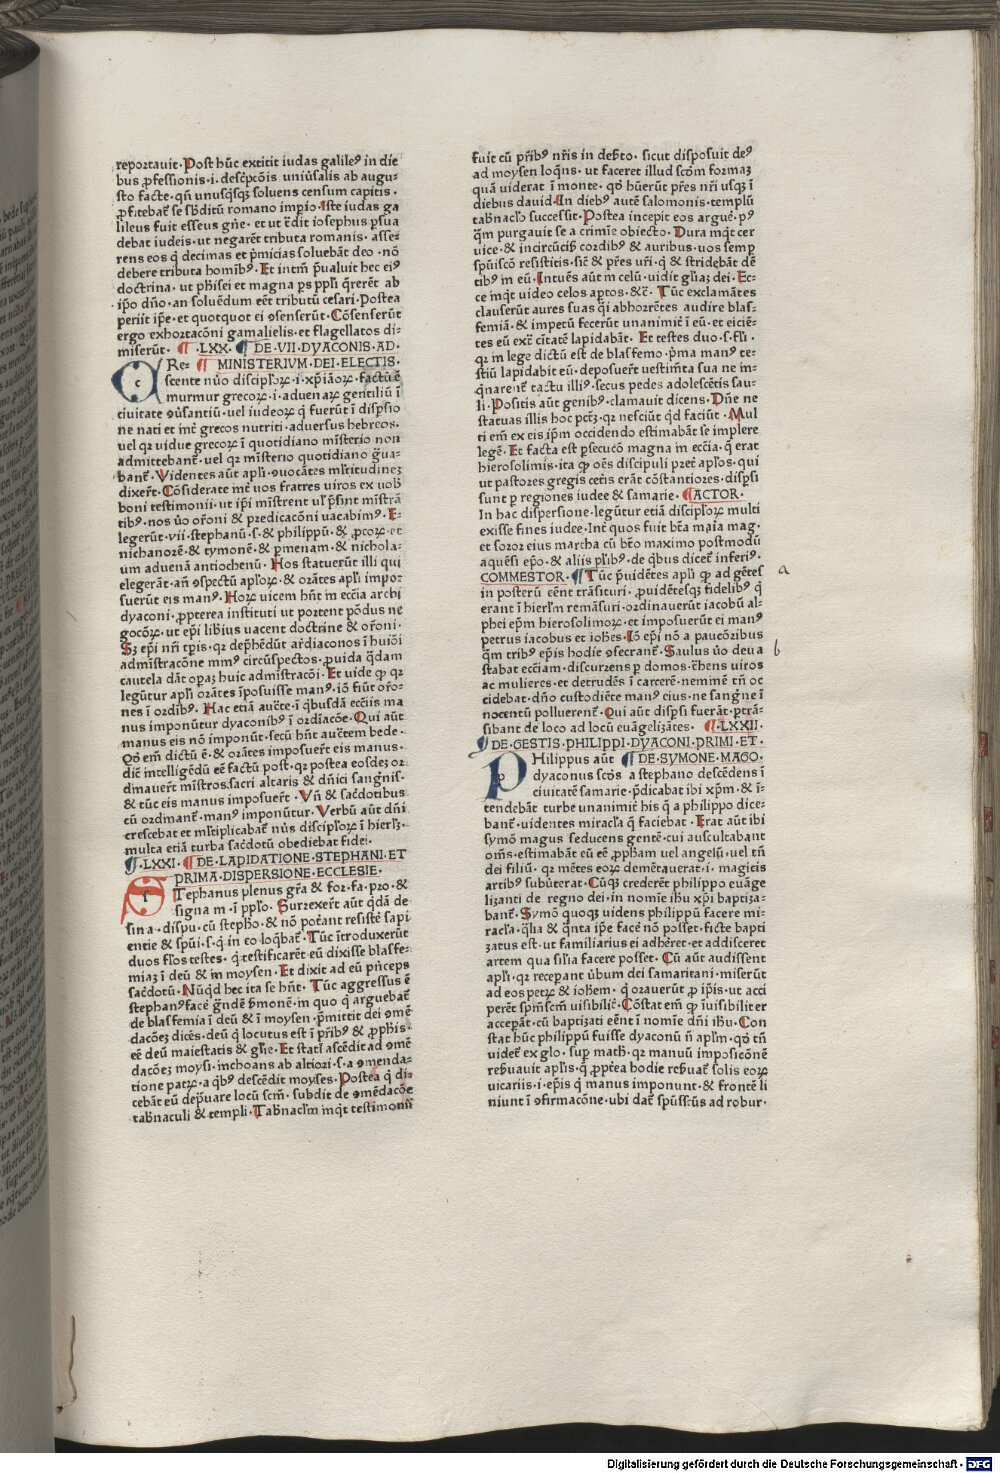 reportauit·Post hūc extitit iudas galileꝰ in die
bus ꝓfessionis·i·desc̄pc̄ōis uniūsalis ab augu-
sto facte·qn̄ unusq̄sqꝫ soluens censum capitis·
ꝓfitebat̄ se sb̄ditū romano imꝑio·Iste iudas ga
lileus fuit esseus gn̄e·et ut t̄dit iosephus ꝑsua
debat iudeis·ut negarēt tributa romanis·asse-
rens eos q̄ decimas et p̄micias soluebāt deo·nō
debere tributa homibꝰ·Et intm̄ p̄ualuit hec eiꝰ
doctrina·ut ph̄isei et magna ps ppl̄i q̄rerēt ab
ip̄o dn̄o·an soluēdum eēt tributū cesari·Postea
periit ip̄e·et quotquot ei ꝯsenserūt·Cōsenserūt
ergo exhortacōni gamalielis·et flagellatos di-
miserūt· ¶·LXX· ¶ DE·VII·DYACONIS·AD·
CRe- ¶ MINISTERIVM·DEI·ELECTIS·
scente nūo discipl̄oꝝ·i·xp̄iāoꝝ·factū ē
murmur grecoꝝ·i·aduenaꝝ gentiliū ī
ciuitate ꝯūsantiū·uel iudeoꝝ q̄ fuerūt ī disp̄sio
ne nati et int̄ grecos nutriti·aduersus hebreos·
uel qꝛ uidue grecoꝝ ī quotidiano mīsterio non
admittebant̄·uel qꝛ mīsterio quotidiano ḡua-
bant̄·Videntes aūt apl̄i·ꝯuocātes ml̄titudineꝫ
dixer̄t·Cōsiderate int̄ uos fratres uiros ex uob̄
boni testimonii·ut ip̄i mīstrent ul̄ p̄sint mīstrā
tibꝰ·nos ūo or̄oni & predicacōni uacabimꝰ·E-
legerūt·vii·stephanū·s·& philippū·& ꝓcoꝝ·et
nichanorē·& tymonē·& pmenam·& nichola-
um aduenā antiochenū·Hos statuerūt illi qui
elegerāt·an̄ ꝯspectū apl̄oꝝ·& orātes apl̄i impo-
suerūt eis manꝰ·Hoꝝ uicem hn̄t in ecc̄ia archi
dyaconi·ꝓpterea instituti ut portent pōdus ne
gocōꝝ·ut ep̄i lib̄ius uacent doctrine & or̄oni·
Sꝫ ep̄i nr̄i tp̄is·qꝛ dep̄hēdūt ar̄diaconos ī huiōi
admīstracōne mmꝰ circūspectos·ꝓuida q̄dam
cautela dāt opaꝫ huic admīstracōi·Et uide ꝙ qꝛ
legūtur apl̄i orātes īposuisse manꝰ·iō fiūt or̄o-
nes ī ordībꝰ·Hac etiā auc̄te·ī q̄busdā ecc̄iis ma
nus imponūtur dyaconibꝰ ī ordīacōe·Qui aūt
manus eis nō imponūt·secū hn̄t auc̄tem bede·
Qd̄ em̄ dictū ē·& orātes imposuer̄t eis manus·
dic̄ intelligēdū eē factū post·qꝛ postea eosdeꝫ or
dīnauer̄t mīstros·sacri altaris & dn̄ici sangn̄is·
& tūc eis manus imposuer̄t·Vn̄ & sac̄dotibus
cū ordīnant̄·manꝰ imponūtur·Verbū aūt dn̄i
crescebat et ml̄tiplicabat̄ nūs discipl̄oꝝ ī hierl̄ꝫ·
multa etiā turba sac̄dotū obediebat fidei·
¶·LXXI·¶DE·LAPIDATIONE·STEPHANI·ET
PRIMA·DISPERSIONE·ECCLESIE·
STephanus plenus gr̄a & for·fa·pro·&
signa m·ī ppl̄o·Surrexer̄t aūt q̄dā de
sin a·dispu·cū steph̄o·& nō pot̄ant resiste̅ sapi
entie & sp̄ui·s·q̄ in eo loq̄bat̄·Tūc ītroduxerūt
duos fl̄os testes·q̄ testificarēt eū dixisse blasfe-
miaꝫ ī deū & in moysen·Et dixit ad eū p̄nceps
sac̄dotū·Nūq̄d hec ita se hn̄t·Tūc aggressus ē
stephanꝰ face̅ ḡndē ẜmonē·in quo q̄ arguebat̄
de blasfemia ī deū & ī moysen·p̄mittit dei ꝯmē
dacōeꝫ dicēs·deū q̄ locutus est ī pr̄ibꝰ & ꝓph̄is·
eē deū maiestatis & gl̄ie·Et statī ascēdit ad ꝯmē
dacōeꝫ moysi·inchoans ab altiori·s·a ꝯmenda-
tione patꝝ·a q̄bꝰ descēdit moyses·Postea q̄ di-
cebāt eū dep̄uare locū scm̄·subdit de ꝯmēdacōe
tab̄naculi & templi·Tab̄nacl̄m inq̄t testimonii
fuit cū pr̄ibꝰ nr̄is in deb̄to·sicut disposuit deꝰ
ad moysen loq̄ns·ut faceret illud scd̄m formaꝫ
quā uiderat ī monte·qd̄ hūerūt pr̄es nr̄i usqꝫ ī
diebus dauid·In diebꝰ autē salomonis·templū
tab̄nacl̄o successit·Postea incepit eos argue̅·pꝰ
q̄m purgauit se a crimīe obiecto·Dura inq̄t cer
uice·& incircūcis̄ cordibꝰ & auribus·uos semꝑ
sp̄uiscō resistitis·sic̄ & pr̄es ur̄i·q̄ & stridebāt dē
tibꝰ in eū·Intuēs aūt in celū·uidit gl̄iaꝫ dei·Ec-
ce inq̄t uideo celos aꝑtos·&c̄·Tūc exclamātes
clauserūt aures suas q̄i abhorrētes audire blas-
femiā·& impetū fecerūt unanimit̄ ī eū·et eiciē-
tes eū ext̄ citatē lapidabāt·Et testes duo·s·fl̄i·
qꝛ in lege dictū est de blasfemo·p̄ma manꝰ te-
stiū lapidabit eū·deposuer̄t uestim̄ta sua ne in-
q̄narent̄ tactu illiꝰ·secus pedes adolescētis sau-
li·Positis aūt genibꝰ·clamauit dicens·Dn̄e ne
statuas illis hoc pctꝫ·qꝛ nesciūt q̄d faciūt·Mul
ti em̄ ex eis ip̄m occidendo estimabāt se implere
legē·Et facta est ꝑsecucō magna in ecc̄ia·q̄ erat
hierosolimis·ita ꝙ oēs discipuli p̄ret̄ apl̄os·qui
ut pastores gregis cet̄is erāt cōstantiores·disp̄si
sunt ꝑ regiones iudee & samarie·¶ACTOR·
In hac dispersione·legūtur etiā discipl̄oꝝ multi
exisse fines iudee·Int̄ quos fuit bt̄a maīa mag-
et soror eius marcha cū bt̄o maximo postmodū
aquēsi ep̄o·& aliis pl̄ibꝰ·de q̄bus dicet̄ inferiꝰ·
COMMESTOR·¶Tūc p̄uidētes apl̄i ꝙ ad gētes
in posterū eēnt trāsituri·ꝓuidētesqꝫ fidelibꝰ q̄
erant ī hierl̄m remāsuri·ordinauerūt iacobū al-
phei ep̄m hierosolimoꝝ·et imposuerūt ei manꝰ
petrus iacobus et ioh̄es·Iō ep̄i nō a paucōribus
q̄m tribꝰ ep̄is hodie ꝯsecrant̄·Saulus ūo deuа
stabat ecc̄iam·discurrens ꝑ domos·t̄hens uiros
ac mulieres·et detrudēs ī carcerē·neminē tn̄ oc
cidebat·dn̄o custodiēte manꝰ eius·ne sangn̄e ī
nocentū polluerent̄·Qui aūt disp̄si fuerāt·ꝑtrā-
sibant de loco ad locū euāgelizātes· ¶·LXXII·
¶DE·GESTIS·PHILIPPI·DYACONI·PRIMI·ET·
PHilippus aūt ¶DE·SYMONE·MAGO·
dyaconus scd̄s a stephano descēdens ī
ciuitatē samarie·p̄dicabat ibi xp̄m·& ī-
tendebāt turbe unanimit̄ his q̄ a philippo dice-
bant̄·uidentes miracl̄a q̄ faciebat·Erat aūt ibi
symō magus seducens gentē·cui auscultabant
om̄s·estimabāt eū eē ꝓph̄am uel angelū·uel tn̄
dei filiū·qꝛ mētes eoꝝ demētauerat·i·magicis
artibꝰ subūterat·Cūqꝫ crederēt philippo euāge
lizanti de regno dei·in nomīe ih̄u xp̄i baptiza-
bant̄·Symō quoqꝫ uidens philippū facere mi-
racl̄a·q̄lia & q̄nta ip̄e face̅ nō posset·ficte bapti
zatus est·ut familiarius ei adh̄eret·et addisceret
artem qua sil̄ia facere posset·Cū aūt audissent
apl̄i·qꝛ recepant ūbum dei samaritani·miserūt
ad eos petꝝ & ioh̄em·q̄ orauerūt ꝓ ip̄is·ut acci
perēt sp̄m sc̄m uisibilit̄·Cōstat em̄ ꝙ īuisibiliter
accepāt·cū baptizati eēnt ī nomīe dn̄i ih̄u·Con
stat huc philippū fuisse dyaconū n̄ apl̄m·qd̄ tn̄
uidet̄ ex glo·suꝑ math̄·qꝛ manuū imposiconē
reb̄uauit apl̄is·q̄ ꝓpt̄ea hodie reb̄uat̄ solis eoꝝ
uicariis·i·ep̄is q̄ manus imponunt·& frontē li
niunt ī ꝯfirmacōne·ubi dat̄ sp̄ussc̄us ad robur·
a
b
Digitalisierung gefördert durch die Deutsche Forschungsgemeinschaft - DFG